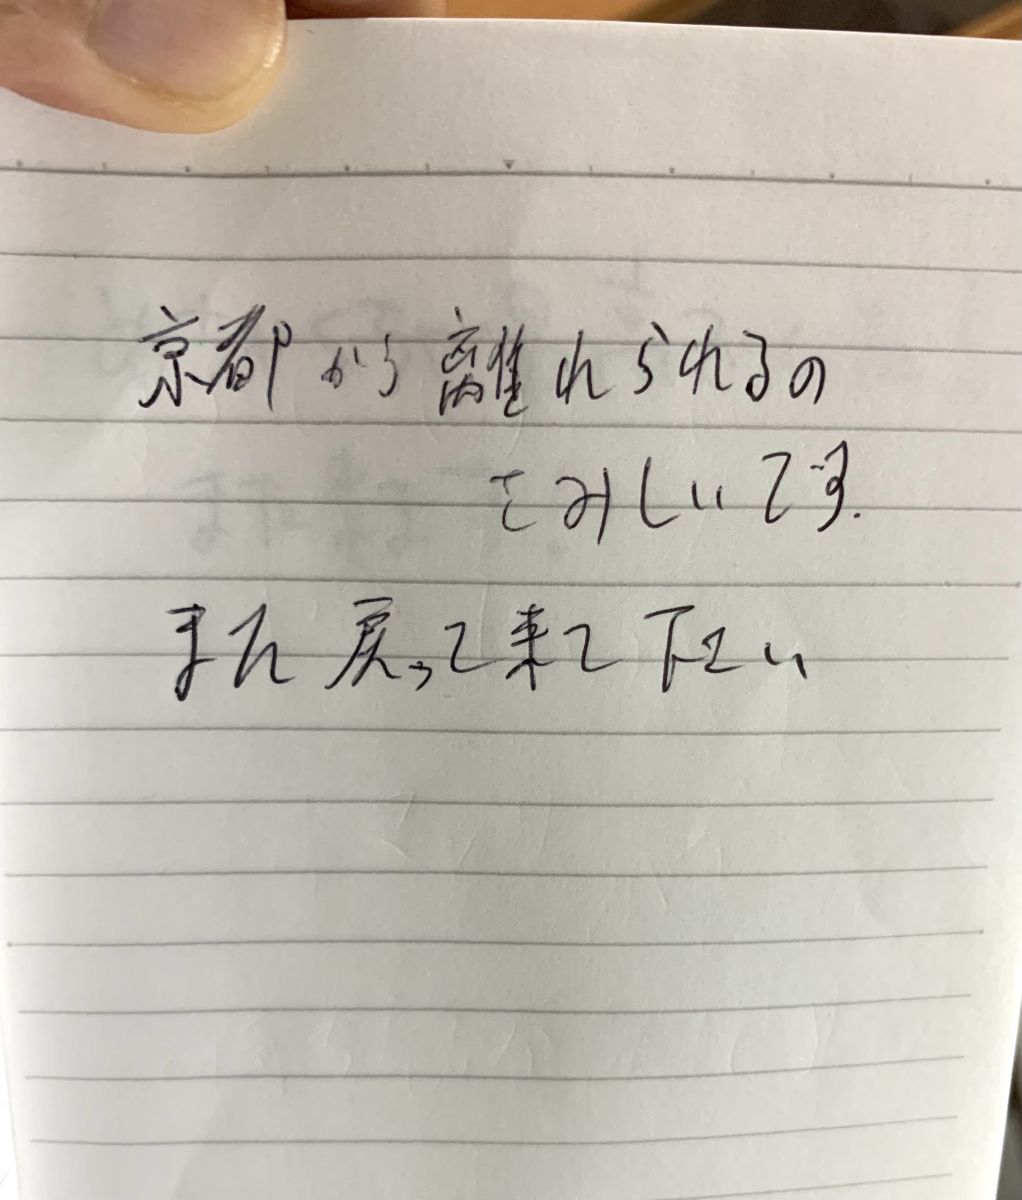 京都から離れられるの
さみしいです.
また戻って来て下さい